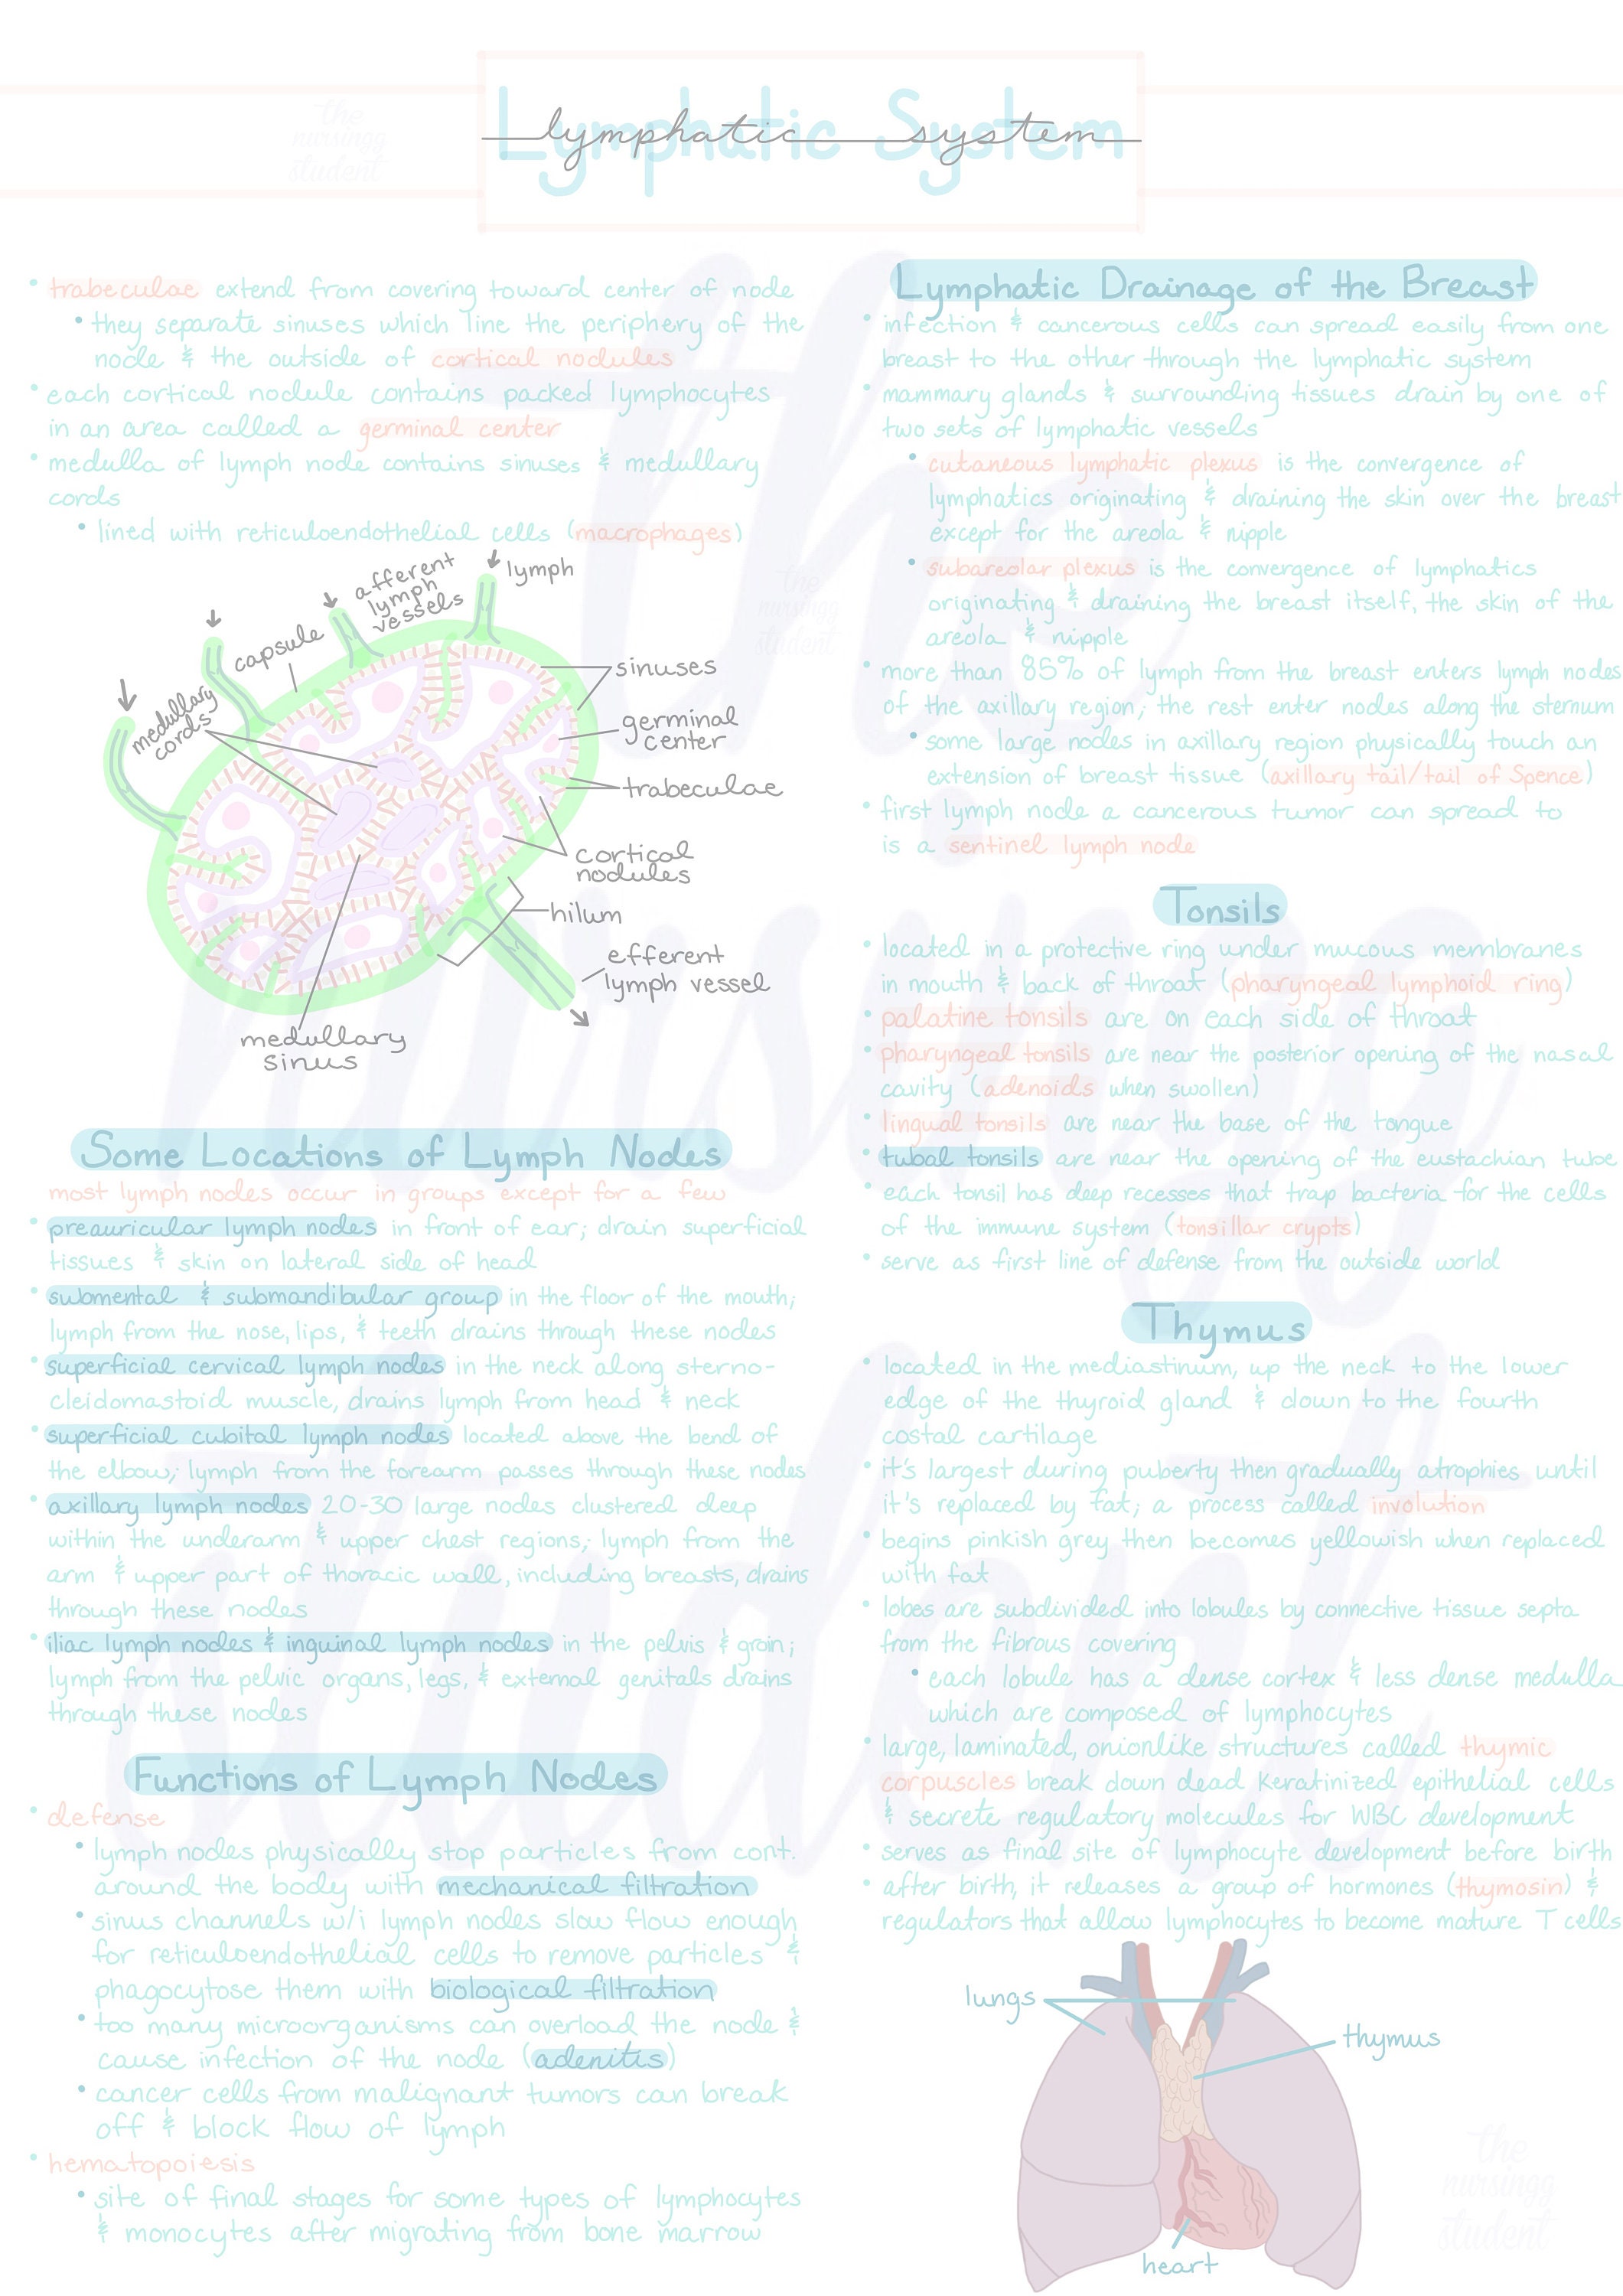 Lymphatic System
lymphatic system
the
nursingg
student
• trabeculae extend from covering toward center of node
• they separate sinuses which line the periphery of the
node & the outside of cortical nodules
• each cortical nodule contains packed lymphocytes
in an area called a germinal center
• medulla of lymph node contains sinuses & medullary
cords
• lined with reticuloendothelial cells (macrophages)
afferent
lymph
vessels
lymph
capsule
medullary
cords
sinuses
germinal
center
trabeculae
cortical
nodules
hilum
efferent
lymph vessel
medullary
sinus
the
nursingg
student
Some Locations of Lymph Nodes
most lymph nodes occur in groups except for a few
• preauricular lymph nodes in front of ear; drain superficial
tissues & skin on lateral side of head
• submental & submandibular group in the floor of the mouth;
lymph from the nose, lips, & teeth drains through these nodes
• superficial cervical lymph nodes in the neck along sterno-
cleidomastoid muscle, drains lymph from head & neck
• superficial cubital lymph nodes located above the bend of
the elbow; lymph from the forearm passes through these nodes
• axillary lymph nodes 20-30 large nodes clustered deep
within the underarm & upper chest regions; lymph from the
arm & upper part of thoracic wall, including breasts, drains
through these nodes
• iliac lymph nodes & inguinal lymph nodes in the pelvis & groin;
lymph from the pelvic organs, legs, & external genitals drains
through these nodes
Functions of Lymph Nodes
• defense
• lymph nodes physically stop particles from cont.
around the body with mechanical filtration
• sinus channels w/i lymph nodes slow flow enough
for reticuloendothelial cells to remove particles &
phagocytose them with biological filtration
• too many microorganisms can overload the node &
cause infection of the node (adenitis)
• cancer cells from malignant tumors can break
off & block flow of lymph
• hematopoiesis
• site of final stages for some types of lymphocytes
& monocytes after migrating from bone marrow
Lymphatic Drainage of the Breast
• infection & cancerous cells can spread easily from one
breast to the other through the lymphatic system
• mammary glands & surrounding tissues drain by one of
two sets of lymphatic vessels
• cutaneous lymphatic plexus is the convergence of
lymphatics originating & draining the skin over the breast
except for the areola & nipple
• subareolar plexus is the convergence of lymphatics
originating & draining the breast itself, the skin of the
areola & nipple
• more than 85% of lymph from the breast enters lymph nodes
of the axillary region; the rest enter nodes along the sternum
• some large nodes in axillary region physically touch an
extension of breast tissue (axillary tail/tail of Spence)
• first lymph node a cancerous tumor can spread to
is a sentinel lymph node
Tonsils
• located in a protective ring under mucous membranes
in mouth & back of throat (pharyngeal lymphoid ring)
• palatine tonsils are on each side of throat
• pharyngeal tonsils are near the posterior opening of the nasal
cavity (adenoids when swollen)
• lingual tonsils are near the base of the tongue
• tubal tonsils are near the opening of the eustachian tube
• each tonsil has deep recesses that trap bacteria for the cells
of the immune system (tonsillar crypts)
• serve as first line of defense from the outside world
Thymus
• located in the mediastinum, up the neck to the lower
edge of the thyroid gland & down to the fourth
costal cartilage
• it's largest during puberty then gradually atrophies until
it's replaced by fat; a process called involution
• begins pinkish grey then becomes yellowish when replaced
with fat
• lobes are subdivided into lobules by connective tissue septa
from the fibrous covering
• each lobule has a dense cortex & less dense medulla
which are composed of lymphocytes
• large, laminated, onionlike structures called thymic
corpuscles break down dead keratinized epithelial cells
& secrete regulatory molecules for WBC development
• serves as final site of lymphocyte development before birth
• after birth, it releases a group of hormones (thymosin) &
regulators that allow lymphocytes to become mature T cells
lungs
thymus
heart
the
nursingg
student
the
nursingg
student